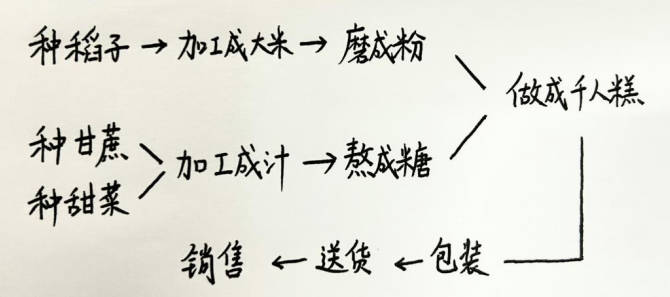 种稻子→加工成大米→磨成粉
做成千人糕
种甘蔗
种甜菜
加工成汁→熬成糖
销售←送货←包装